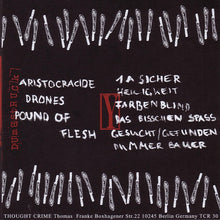 ARISTOCRACIDE
DRONES
POUND OF
FLESH
1A SICHER
HEILIGKEIT
FARBENBLIND
DAS BISSCHEN SPASS
GESUCHT/GEFUNDEN
NUMMER BAUER
THOUGHT CRIME Thomas Franke Boxhagener Str.22 10245 Berlin Germany TCR 36